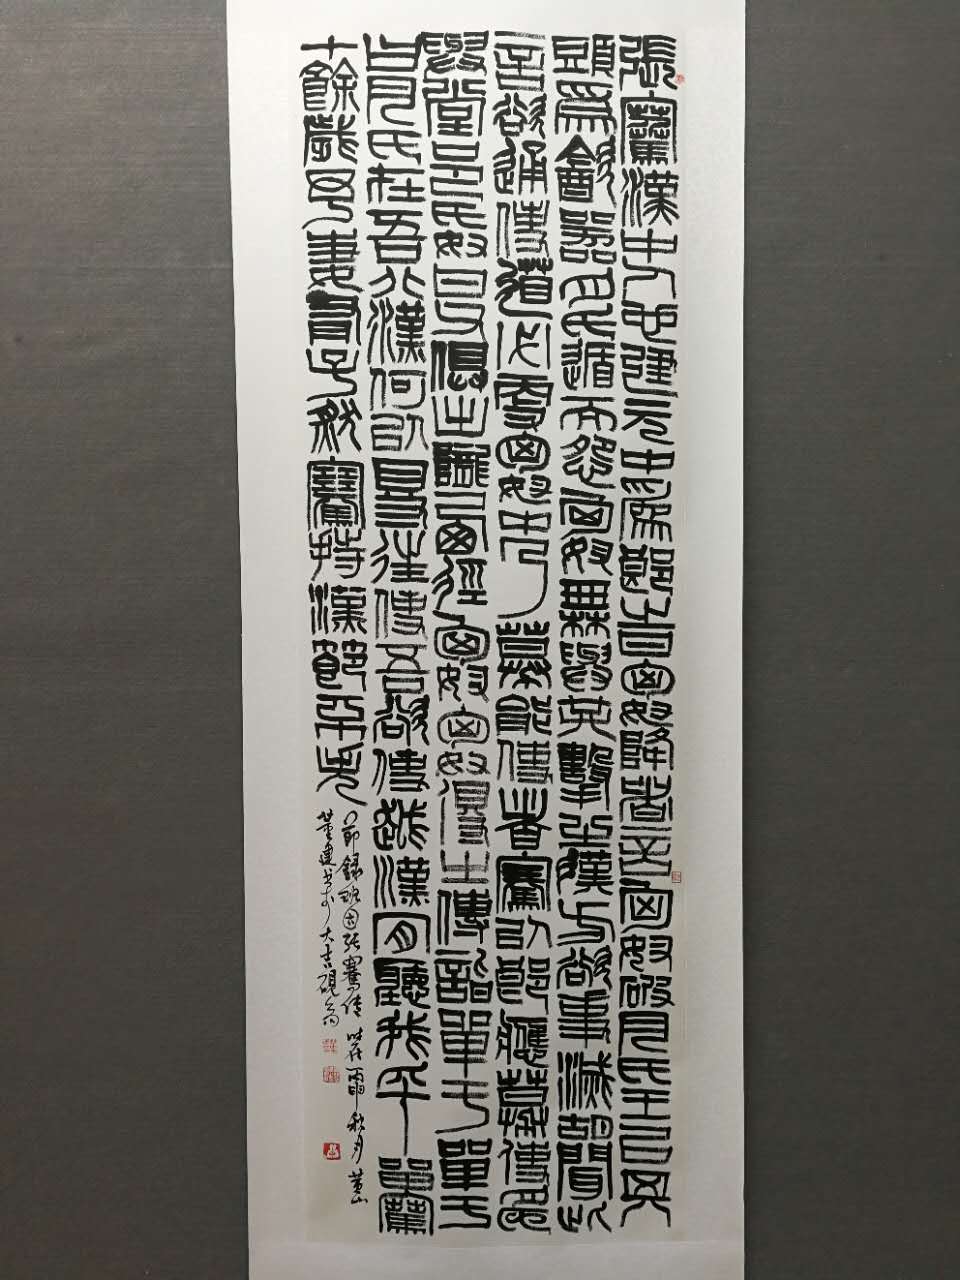 張騫漢中人也建元中為郎時匈奴降者言匈奴破月氏王以其
頭為飲器月氏遁而怨匈奴無與共擊之漢方欲事滅聞此
言欲通使道必更匈奴中乃募能使者騫以郎應募使
與堂邑氏奴甘父俱出隴西徑匈奴匈奴得之傳詣單于單于
曰月氏在吾北漢何以得往使吾欲使越漢肯聽我乎留騫
十餘歲予妻有子然騫持漢節不失
節錄班固張騫傳 時在丙申秋月 黃山
建書於大吉硯